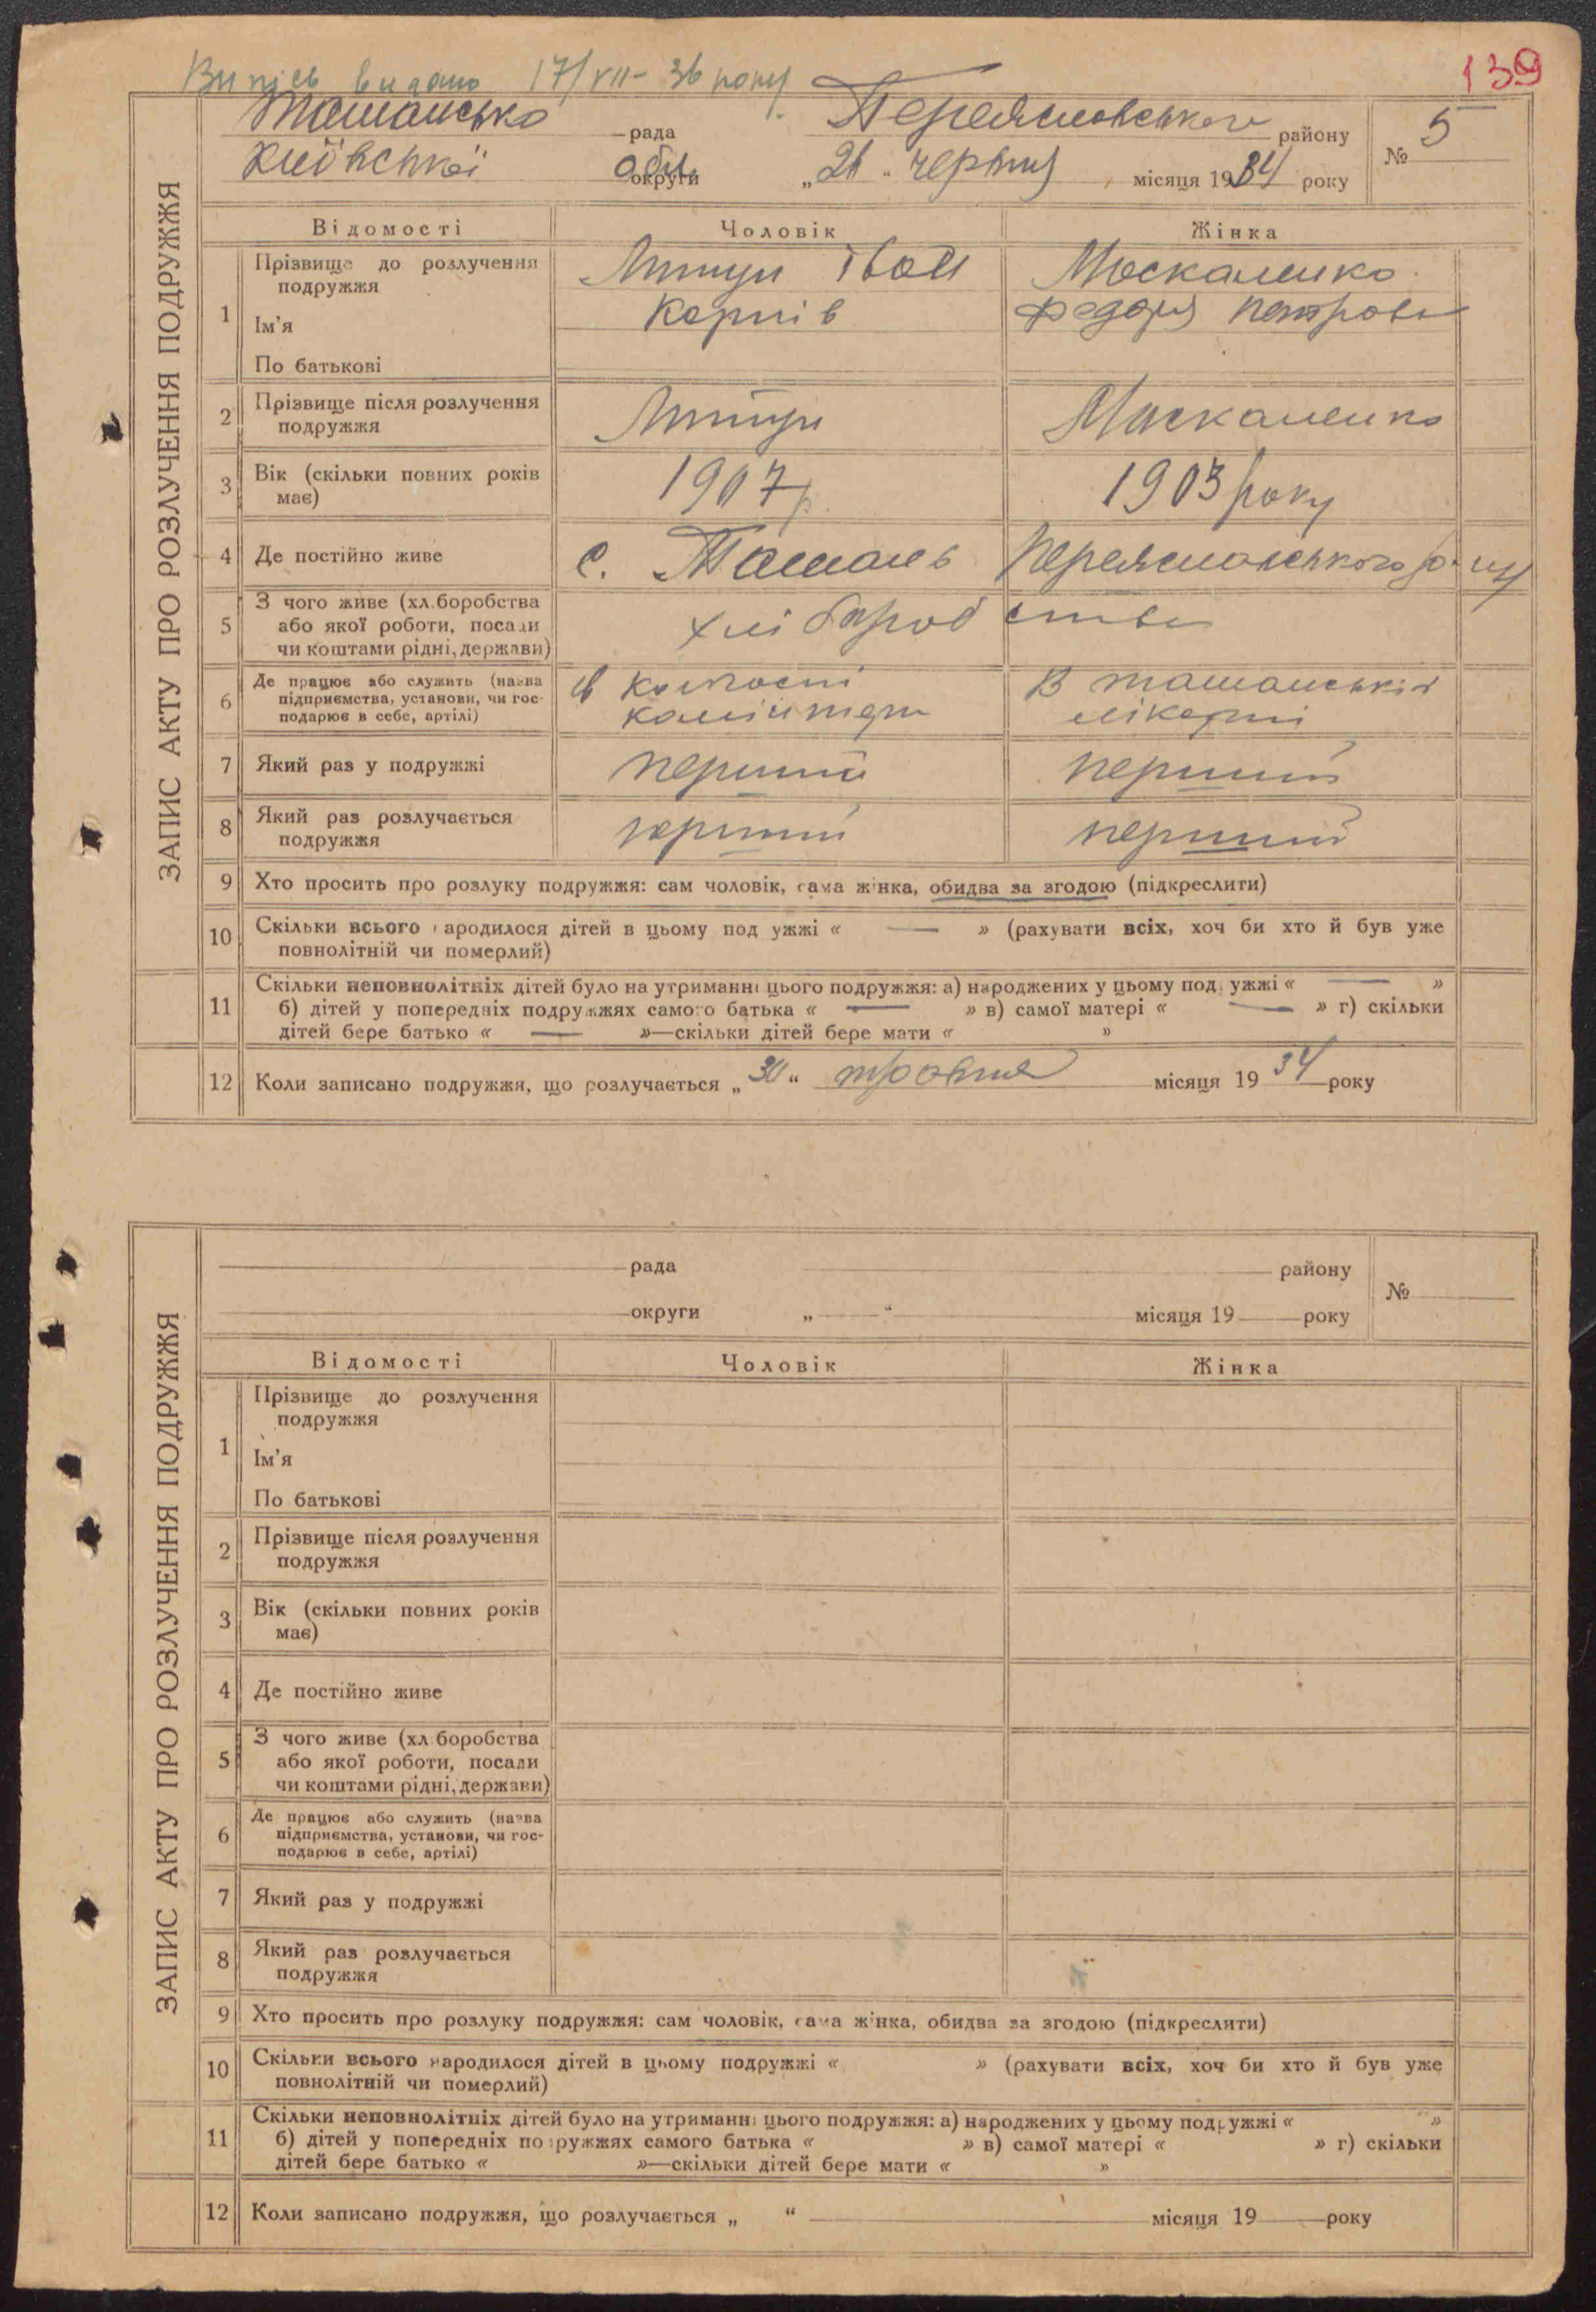 Випись видано 17/VII-36 року
139
Ташанська рада Переяславського району № 5
Київської обл. округи „26“ червня місяця 1934 року
ЗАПИС АКТУ ПРО РОЗЛУЧЕННЯ ПОДРУЖЖЯ
Відомості Чоловік Жінка
1 Прізвище до розлучення подружжя Іван Москаленко
Ім'я Карпів Федора Петрова
По батькові
2 Прізвище після розлучення подружжя Москаленко
3 Вік (скільки повних років має) 1907 р. 1903 року
4 Де постійно живе с. Ташань Переяславського р-ну
5 З чого живе (хл.боробства або якої роботи, посади чи коштами рідні, держави) хліборобства
6 Де працює або служить (назва підприємства, установи, чи господарює в себе, артілі) в колгоспі В ташанській лікарні
7 Який раз у подружжі перший перший
8 Який раз розлучається подружжя перший перший
9 Хто просить про розлуку подружжя: сам чоловік, сама жінка, обидва за згодою (підкреслити)
10 Скільки всього народилося дітей в цьому подружжі « — » (рахувати всіх, хоч би хто й був уже
повнолітній чи померлий)
11 Скільки неповнолітніх дітей було на утриманні цього подружжя: а) народжених у цьому подружжі « — »
б) дітей у попередніх подружжях самого батька « — » в) самої матері « — » г) скільки
дітей бере батько « — »—скільки дітей бере мати « »
12 Коли записано подружжя, що розлучається „30“ травня місяця 1934 року
рада району №
округи „ “ місяця 19 року
ЗАПИС АКТУ ПРО РОЗЛУЧЕННЯ ПОДРУЖЖЯ
Відомості Чоловік Жінка
1 Прізвище до розлучення
подружжя
Ім'я
По батькові
2 Прізвище після розлучення
подружжя
3 Вік (скільки повних років
має)
4 Де постійно живе
5 З чого живе (хл.боробства
або якої роботи, посади
чи коштами рідні, держави)
6 Де працює або служить (назва
підприємства, установи, чи гос-
подарює в себе, артілі)
7 Який раз у подружжі
8 Який раз розлучається
подружжя
9 Хто просить про розлуку подружжя: сам чоловік, сама жінка, обидва за згодою (підкреслити)
10 Скільки всього народилося дітей в цьому подружжі « » (рахувати всіх, хоч би хто й був уже
повнолітній чи померлий)
11 Скільки неповнолітніх дітей було на утриманні цього подружжя: а) народжених у цьому подружжі « »
б) дітей у попередніх подружжях самого батька « » в) самої матері « » г) скільки
дітей бере батько « »—скільки дітей бере мати « »
12 Коли записано подружжя, що розлучається „ “ місяця 19 року